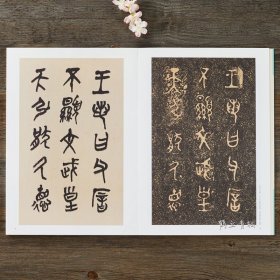 王若曰父厝
不顯文武皇
天引猒厥德
王若曰父厝
不顯文武皇
天引猒厥德